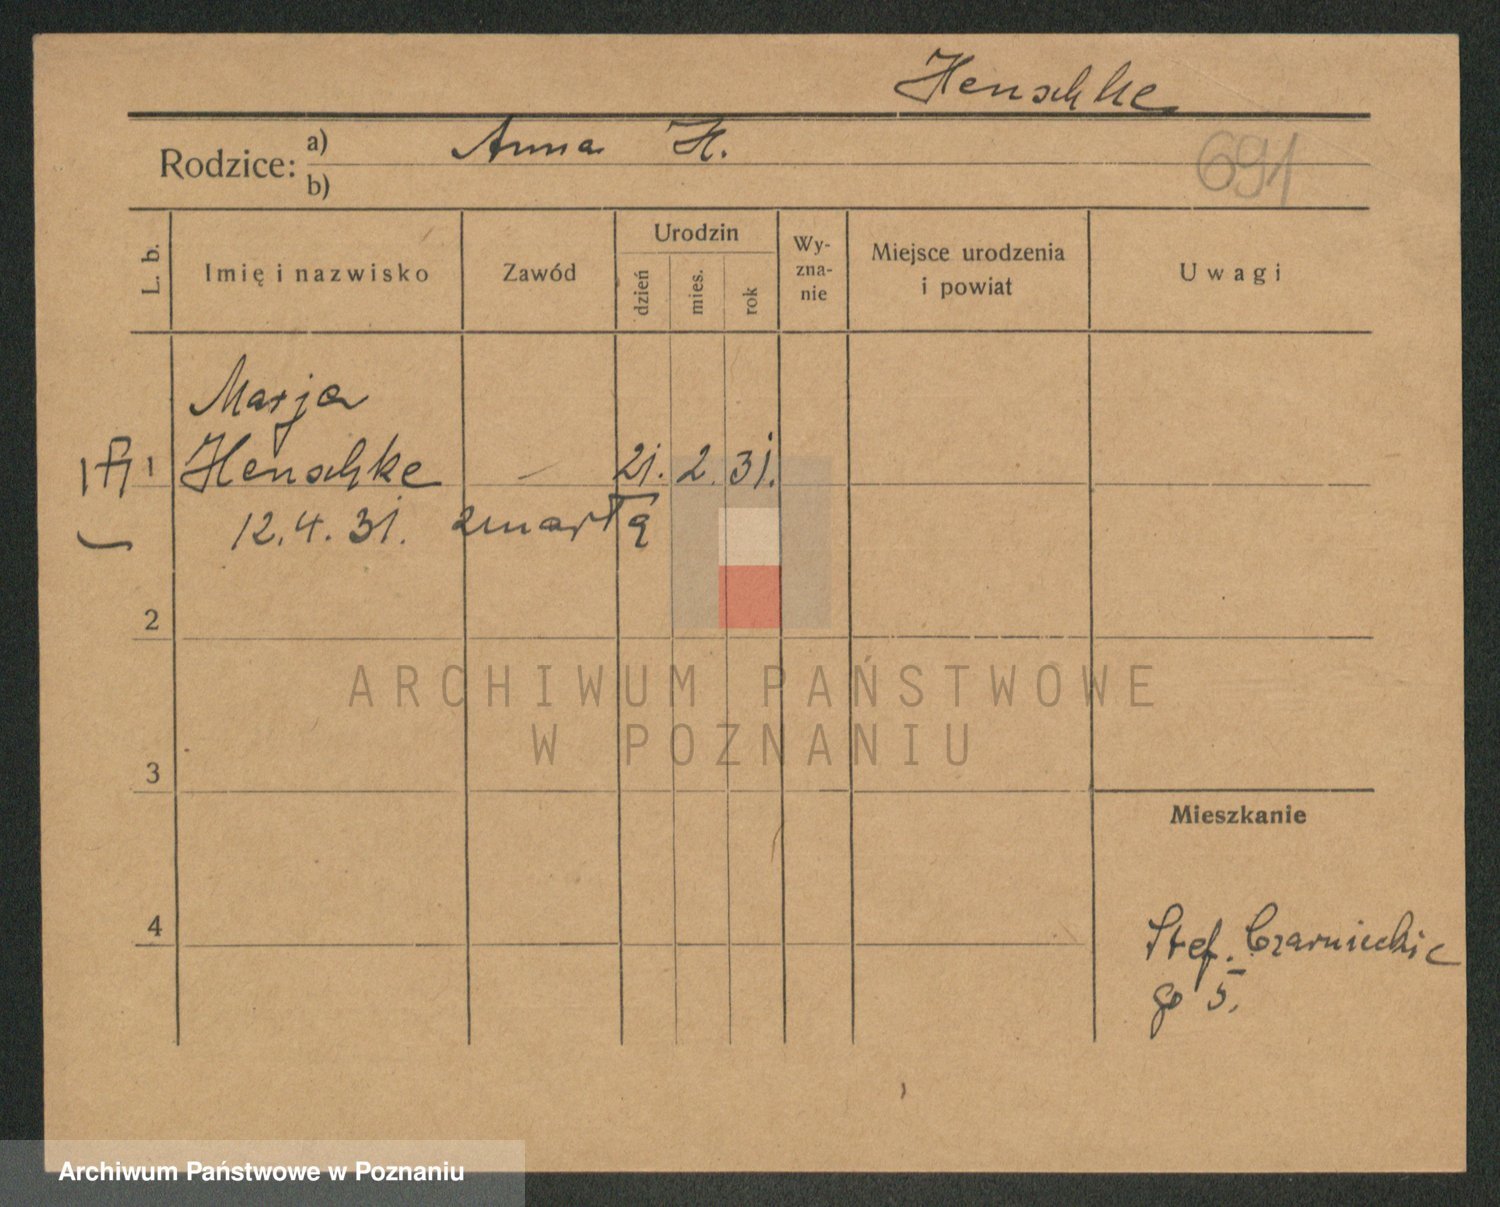 Henschke
Rodzice: a) Anna H.
b)
691
L. b. Imię i nazwisko Zawód Urodzin dzień mies. rok Wy-zna-nie Miejsce urodzenia i powiat Uwagi
Marja
1 Henschke — 21. 2. 31.
12. 4. 31. zmarła
2
ARCHIWUM PAŃSTWOWE
W POZNANIU
3
Mieszkanie
4
Stef. Czarnieckie
go 5.
Archiwum Państwowe w Poznaniu